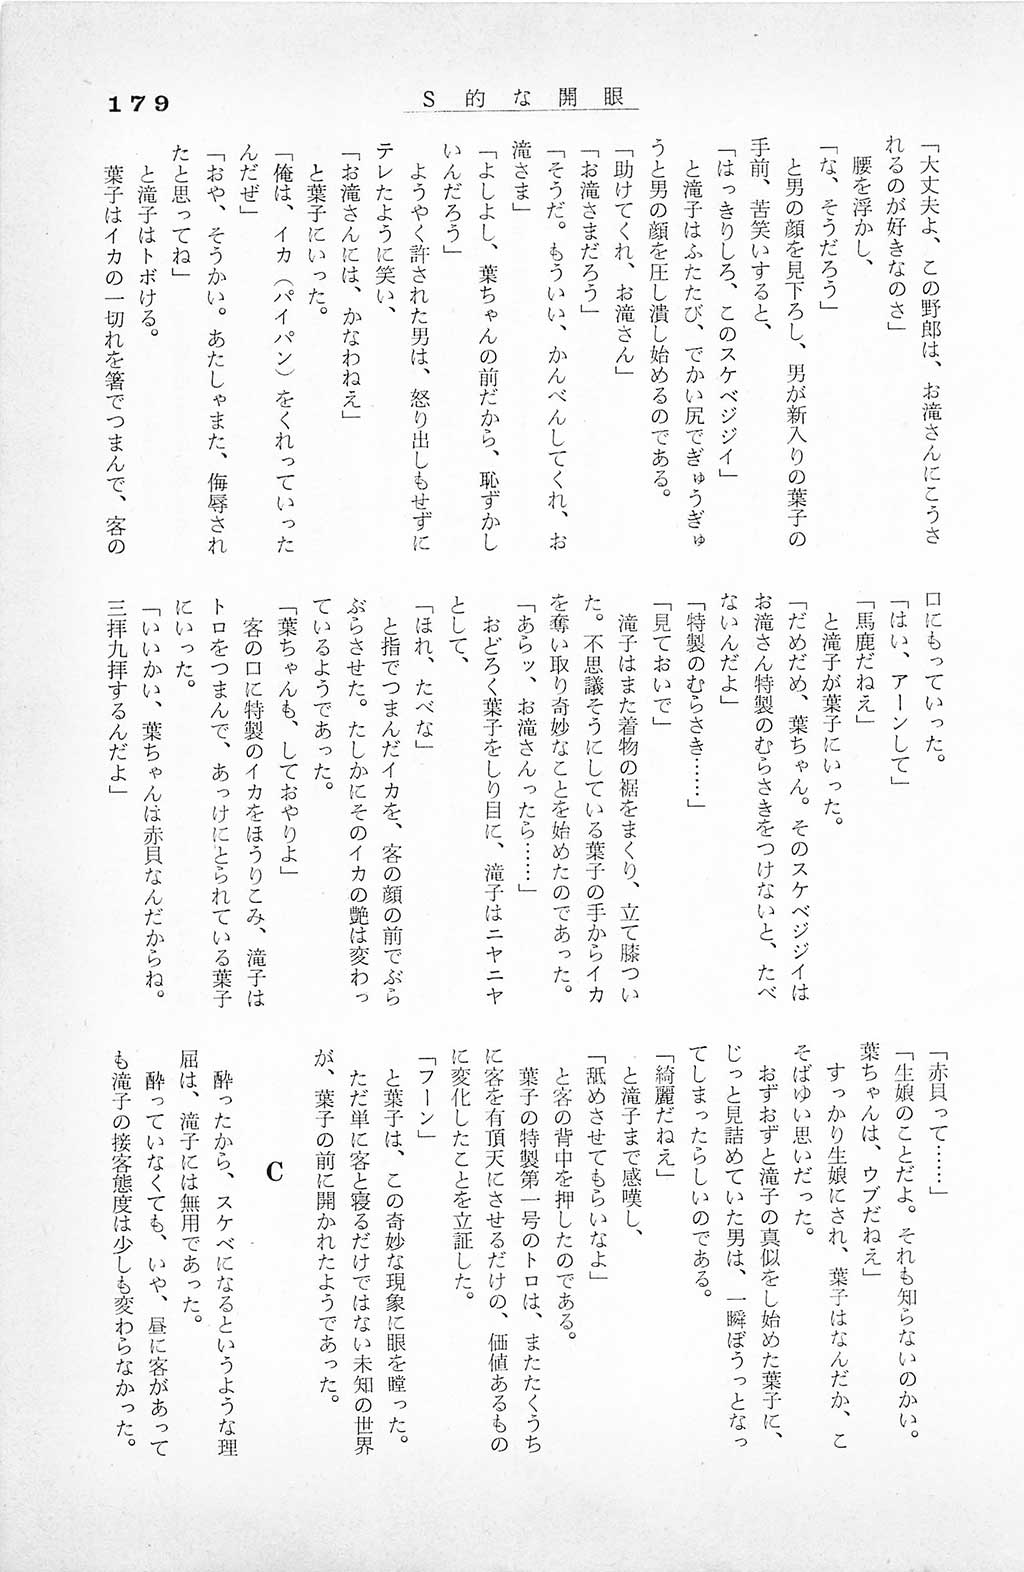 179
S的な開眼
「大丈夫よ、この野郎は、お滝さんにこうさ
れるのが好きなのさ」
腰を浮かし、
「な、そうだろう」
と男の顔を見下ろし、男が新入りの葉子の
手前、苦笑いすると、
「はっきりしろ、このスケベジジイ」
と滝子はふたたび、でかい尻でぎゅうぎゅ
うと男の顔を圧し潰し始めるのである。
「助けてくれ、お滝さん」
「お滝さまだろう」
「そうだ。もういい、かんべんしてくれ、お
滝さま」
「よしよし、葉ちゃんの前だから、恥ずかし
いんだろう」
ようやく許された男は、怒り出しもせずに
テレたように笑い、
「お滝さんには、かなわねえ」
と葉子にいった。
「俺は、イカ（パイパン）をくれっていった
んだぜ」
「おや、そうかい。あたしゃまた、侮辱され
たと思ってね」
と滝子はトボける。
葉子はイカの一切れを箸でつまんで、客の
口にもっていった。
「はい、アーンして」
「馬鹿だねえ」
と滝子が葉子にいった。
「だめだめ、葉ちゃん。そのスケベジジイは
お滝さん特製のむらさきをつけないと、たべ
ないんだよ」
「特製のむらさき……」
「見ておいで」
滝子はまた着物の裾をまくり、立て膝つい
た。不思議そうにしている葉子の手からイカ
を奪い取り奇妙なことを始めたのであった。
「あらッ、お滝さんったら……」
おどろく葉子をしり目に、滝子はニヤニヤ
として、
「ほれ、たべな」
と指でつまんだイカを、客の顔の前でぶら
ぶらさせた。たしかにそのイカの艶は変わっ
ているようであった。
「葉ちゃんも、しておやりよ」
客の口に特製のイカをほうりこみ、滝子は
トロをつまんで、あっけにとられている葉子
にいった。
「いいかい、葉ちゃんは赤貝なんだからね。
三拝九拝するんだよ」
「赤貝って……」
「生娘のことだよ。それも知らないのかい。
葉ちゃんは、ウブだねえ」
すっかり生娘にされ、葉子はなんだか、こ
そばゆい思いだった。
おずおずと滝子の真似をし始めた葉子に、
じっと見詰めていた男は、一瞬ぼうっとなっ
てしまったらしいのである。
「綺麗だねえ」
と滝子まで感嘆し、
「舐めさせてもらいなよ」
と客の背中を押したのである。
葉子の特製第一号のトロは、またたくうち
に客を有頂天にさせるだけの、価値あるもの
に変化したことを立証した。
「フーン」
と葉子は、この奇妙な現象に眼を瞠った。
ただ単に客と寝るだけではない未知の世界
が、葉子の前に開かれたようであった。
C
酔ったから、スケベになるというような理
屈は、滝子には無用であった。
酔っていなくても、いや、昼に客があって
も滝子の接客態度は少しも変わらなかった。